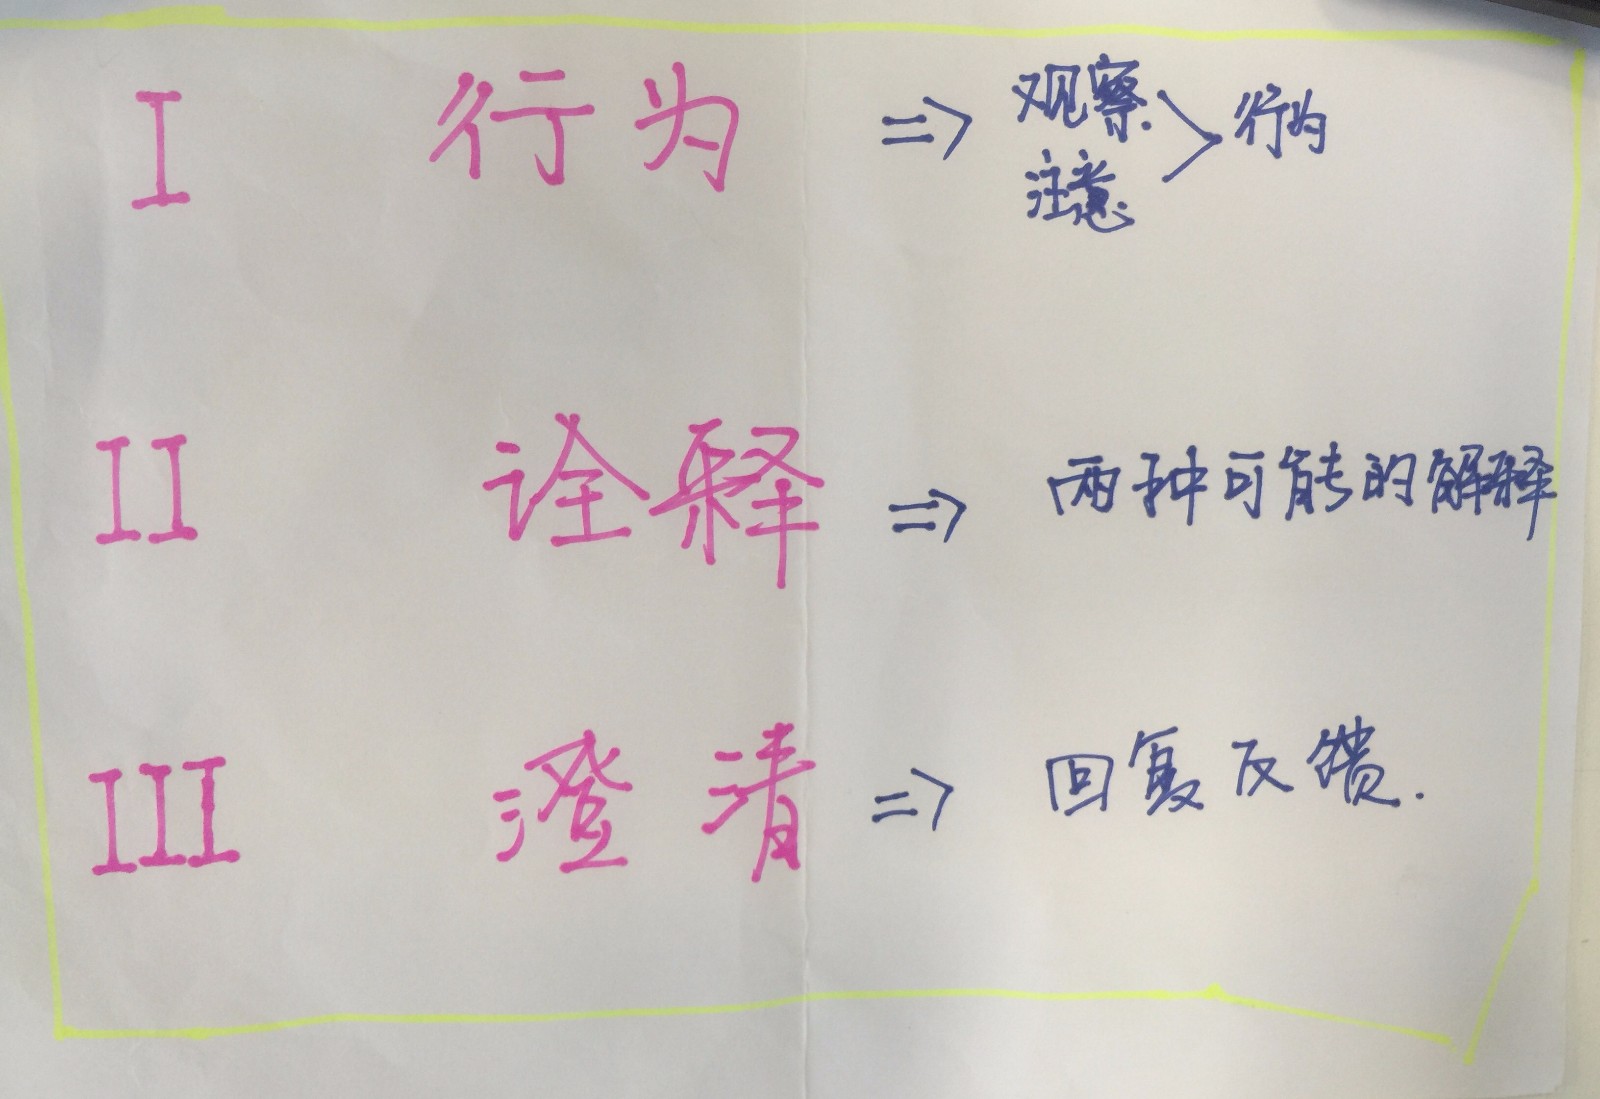 I 行为 => 观察 注意 > 行为
II 诠释 => 两种可能的解释
III 澄清 => 回复反馈.